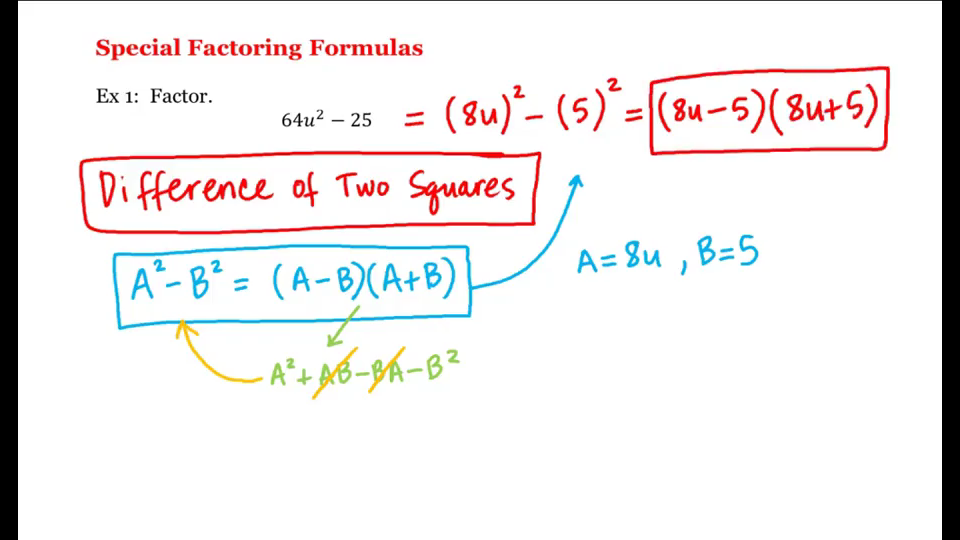 Special Factoring Formulas
Ex 1: Factor.
64u² − 25 = (8u)² − (5)² = (8u−5)(8u+5)
Difference of Two Squares
A² − B² = (A−B)(A+B)
A=8u , B=5
A² + AB − BA − B²